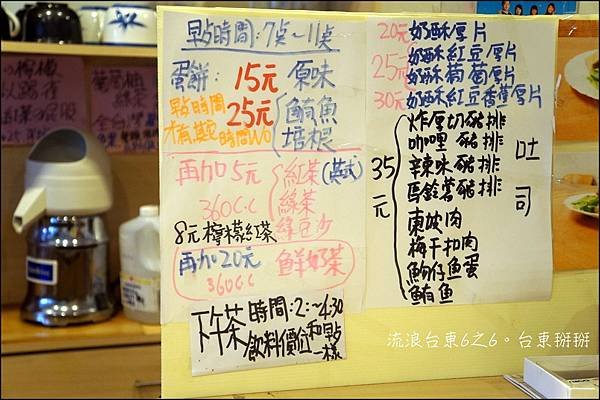 早点時間:7点~11点
蛋餅: 15元 原味
早点時間 25元 鮪魚
才有,其它時間WO 培根
再加5元 紅茶(英式)
360C.C 綠茶
8元檸檬紅茶 綠豆沙
再加20元 鮮奶茶
360C.C
下午茶 時間:2:~4:30
飲料價位和早点一樣
20元 奶酥厚片
25元 奶酥紅豆厚片
奶酥葡萄厚片
30元 奶酥紅豆香蕉厚片
35元 吐司
炸厚切豬排
咖哩豬排
辛辣味豬排
馬鈴薯豬排
東坡肉
梅干扣肉
魩仔魚蛋
鮪魚
流浪台東6之6。台東掰掰